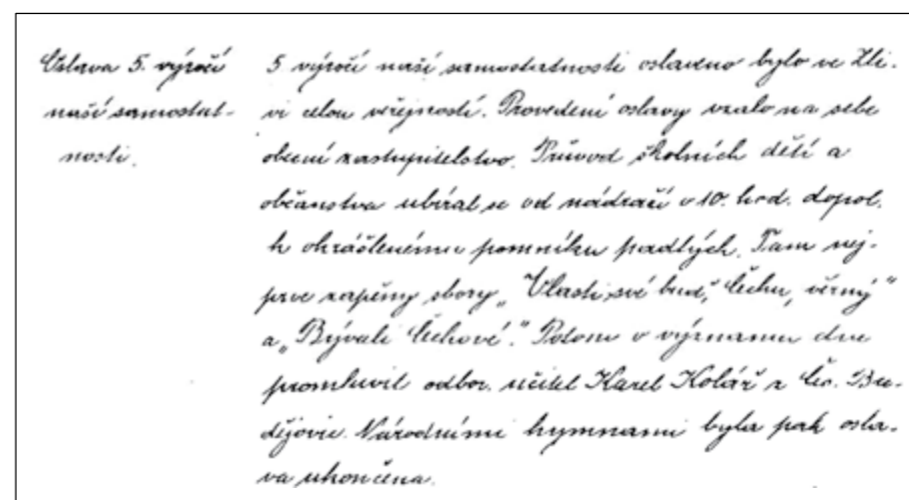 Oslava 5. výročí
naší samostat-
nosti.
5 výročí naší samostatnosti oslaveno bylo ve Zli-
vi celou veřejností. Provedení oslavy vzalo na sebe
obecní zastupitelstvo. Průvod školních dětí a
občanstva ubíral se od nádraží v 10. hod. dopol.
k okrášlenému pomníku padlých. Tam nej-
prve zapěny sbory „Vlasti své buď, Čechu, věrný“
a „Bývali Čechové“. Potom o významu dne
promluvil odbor. učitel Karel Kolář z Čes. Bu-
dějovic. Národními hymnami byla pak osla-
va ukončena.